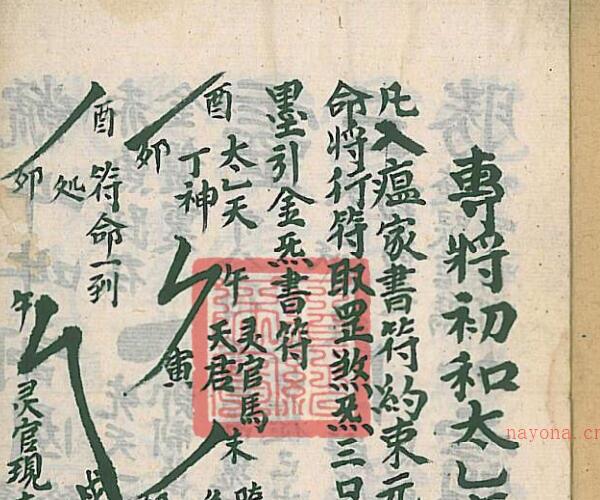 專將初和太乙
凡入瘟家書符約束元
命將行符取罡煞炁三口
墨引金炁書符
酉 太乙天
丁神
卯
午 灵官馬
天君
寅
未
酉 符命一到
处
卯
午
灵官現
nayona.cn